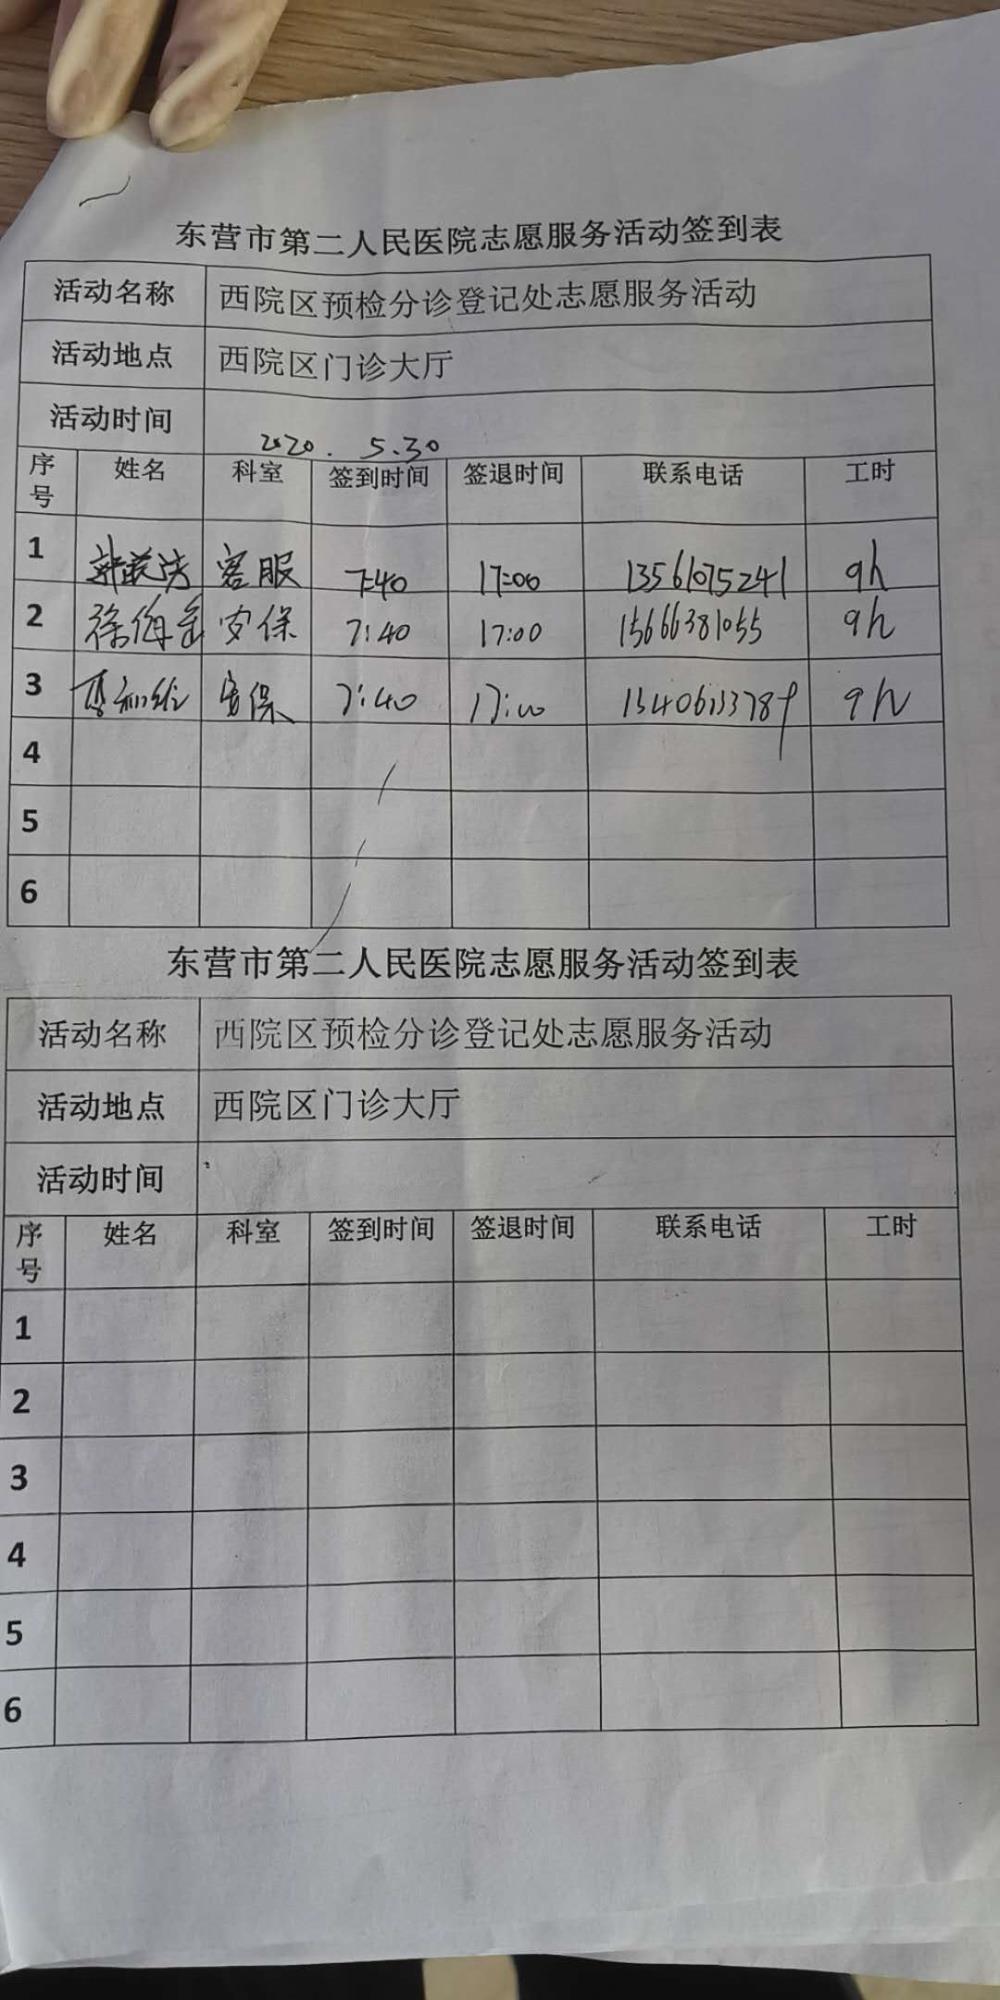 东营市第二人民医院志愿服务活动签到表
活动名称 西院区预检分诊登记处志愿服务活动
活动地点 西院区门诊大厅
活动时间 2020.5.30
序号 姓名 科室 签到时间 签退时间 联系电话 工时
1 客服 7:40 17:00 13561075241 9h
2 安保 7:40 17:00 15666381055 9h
3 安保 7:40 17:00 9h
4
5
6
东营市第二人民医院志愿服务活动签到表
活动名称 西院区预检分诊登记处志愿服务活动
活动地点 西院区门诊大厅
活动时间
序号 姓名 科室 签到时间 签退时间 联系电话 工时
1
2
3
4
5
6